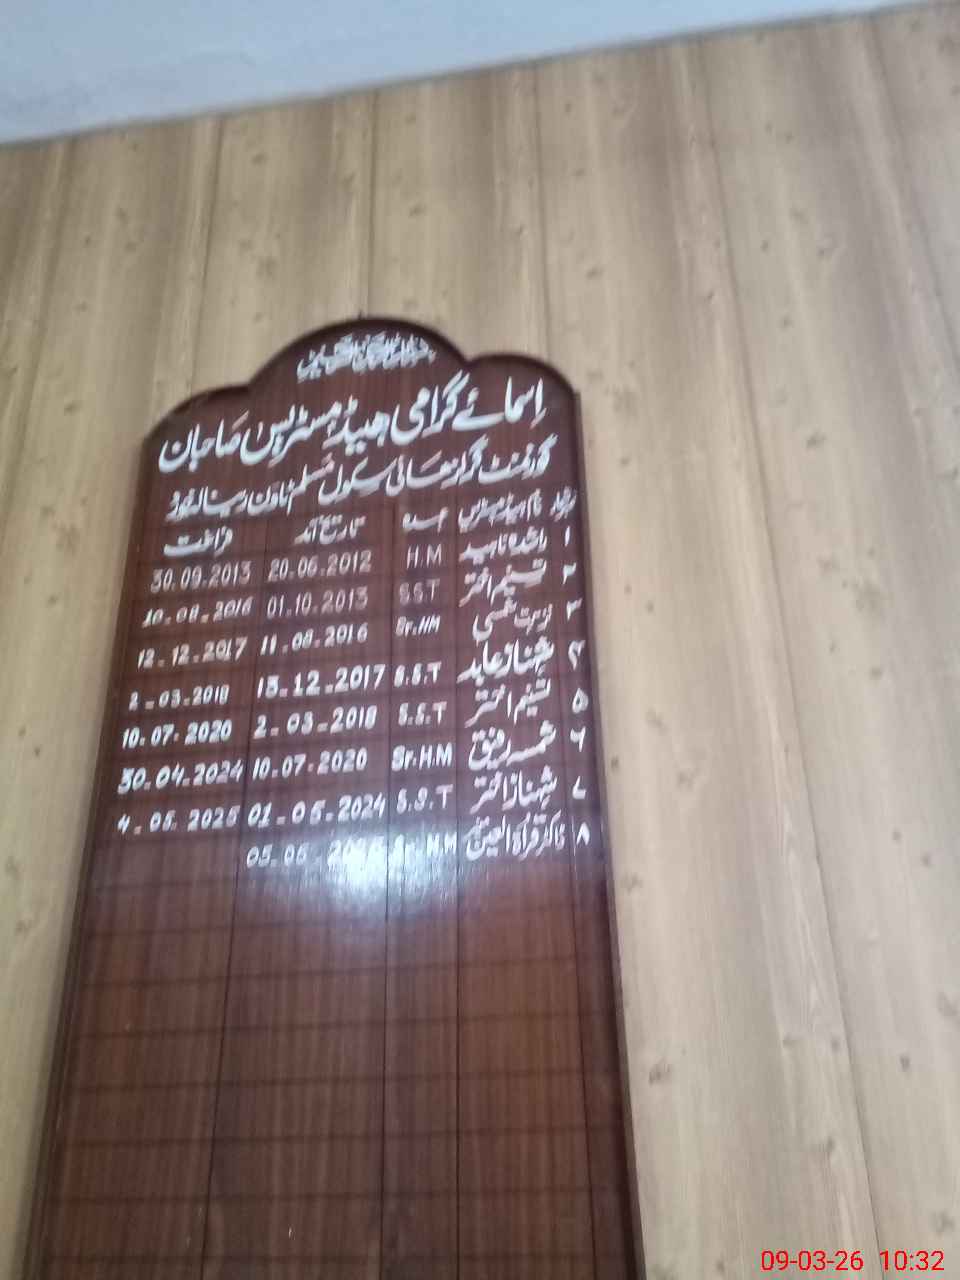 اسمائے گرامی ہیڈ مسٹریس صاحبان
گورنمنٹ گرلز ہائی سکول مسلم ٹاؤن رینالہ خورد
نمبر شمار نام ہیڈ مسٹریس عہدہ تاریخ آمد فراغت
۱ راشدہ ناہید H.M 20.06.2012 30.09.2013
۲ تسنیم اختر S.S.T 01.10.2013 10.08.2016
۳ نزہت شمسی Sr.HM 11.08.2016 12.12.2017
۴ شہناز عابد S.S.T 13.12.2017 2.03.2018
۵ تسنیم اختر S.S.T 2.03.2018 10.07.2020
۶ شمسہ رفیق Sr.H.M 10.07.2020 30.04.2024
۷ شہناز اختر S.S.T 01.05.2024 4.05.2025
۸ ڈاکٹر قراۃ العین Sr.H.M 05.05.
09-03-26 10:32